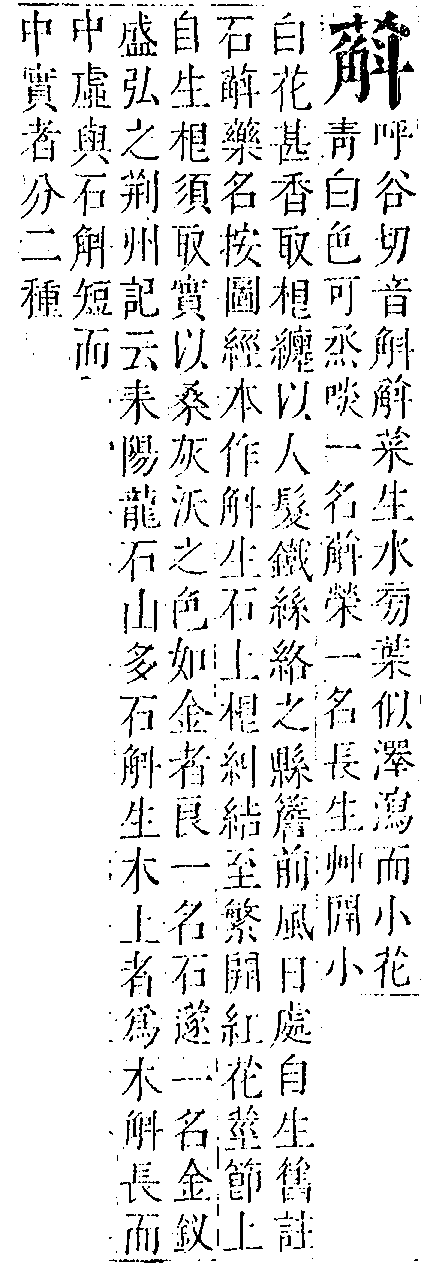 蔛
呼谷切音斛蔛菜生水旁葉似澤瀉而小花
青白色可烝啖一名蔛榮一名長生艸開小
白花甚香取相纏以人髮鐵絲絡之縣簷前風日處自生舊註
石蔛藥名按圖經本作斛生石上相糾結至繁開紅花莖節上
自生根須取實以桑灰沃之色如金者良一名石遂一名金釵
盛弘之荆州記云耒陽龍石山多石斛生木上者爲木斛長而
中虛與石斛短而
中實者分二種